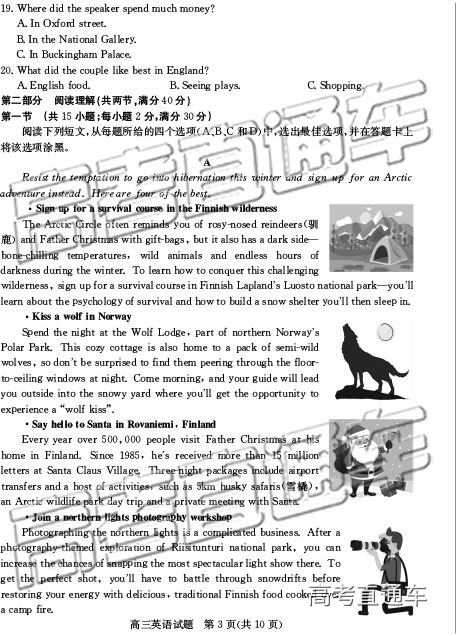 19. Where did the speaker spend much money?
A. In Oxford street.
B. In the National Gallery.
C. In Buckingham Palace.
20. What did the couple like best in England?
A. English food. B. Seeing plays. C. Shopping.
第二部分 阅读理解(共两节,满分40分)
第一节 (共15小题;每小题2分,满分30分)
阅读下列短文,从每题所给的四个选项(A、B、C和D)中,选出最佳选项,并在答题卡上
将该选项涂黑。
A
Resist the temptation to go into hibernation this winter and sign up for an Arctic
adventure instead. Here are four of the best.
· Sign up for a survival course in the Finnish wilderness
The Arctic Circle often reminds you of rosy-nosed reindeers(驯
鹿) and Father Christmas with gift-bags, but it also has a dark side—
bone-chilling temperatures, wild animals and endless hours of
darkness during the winter. To learn how to conquer this challenging
wilderness, sign up for a survival course in Finnish Lapland's Luosto national park—you'll
learn about the psychology of survival and how to build a snow shelter you'll then sleep in.
· Kiss a wolf in Norway
Spend the night at the Wolf Lodge, part of northern Norway's
Polar Park. This cozy cottage is also home to a pack of semi-wild
wolves, so don't be surprised to find them peering through the floor-
to-ceiling windows at night. Come morning, and your guide will lead
you outside into the snowy yard where you'll get the opportunity to
experience a “wolf kiss”.
· Say hello to Santa in Rovaniemi, Finland
Every year over 500,000 people visit Father Christmas at his
home in Finland. Since 1985, he's received more than 15 million
letters at Santa Claus Village. Three-night packages include airport
transfers and a host of activities, such as 5km husky safaris(雪橇),
an Arctic wildlife park day trip and a private meeting with Santa.
· Join a northern lights photography workshop
Photographing the northern lights is a complicated business. After a
photography-themed exploration of Riisitunturi national park, you can
increase the chances of snapping the most spectacular light show there. To
get the perfect shot, you'll have to battle through snowdrifts before
restoring your energy with delicious, traditional Finnish food cooked
a camp fire.
高三英语试题 第3页(共10页)
高考直通车
高考直通车
高考直通车
高考直通车